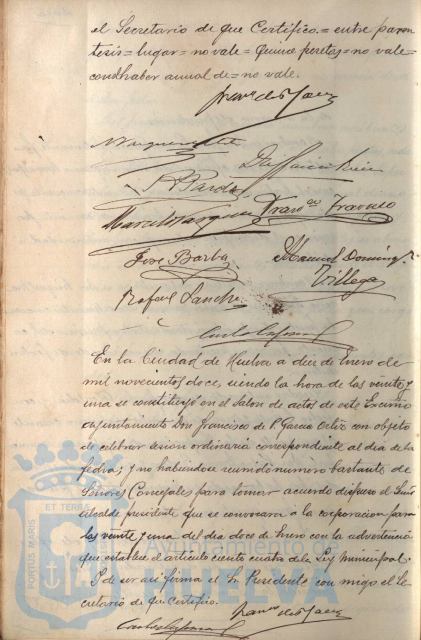 el Secretario de que Certifico.= entre paren
tesis = lugar = no vale = quince pesetas = no vale =
con haber anual de = no vale.
Fran.co de P. Garcia
J. Pardo
Marcelo Vazquez Fran.co Travieso
José Barba Manuel Domíng.z
Villega
Rafael Sanchez
En la Ciudad de Huelva a diez de Enero de
mil novecientos doce, siendo la hora de las veinte y
una se constituyó en el Salon de actos de este Excmo
Ayuntamiento Don Francisco de P. Garcia Ortiz con objeto
de celebrar sesión ordinaria correspondiente al dia de la
fecha; y no habiendose reunido numero bastante de
Señores Concejales para tomar acuerdo dispuso el Señor
Alcalde presidente que se convocara a la corporacion para
las veinte y una del dia doce de Enero con la advertencia
que establece el articulo ciento cuatro de la Ley Municipal.
Y de ser asi firma el Sr. Presidente con migo el Se
cretario de que Certifico.
Fran.co de P. Garcia
PORTUS MARIS
ET TERRÆ
HUELVA